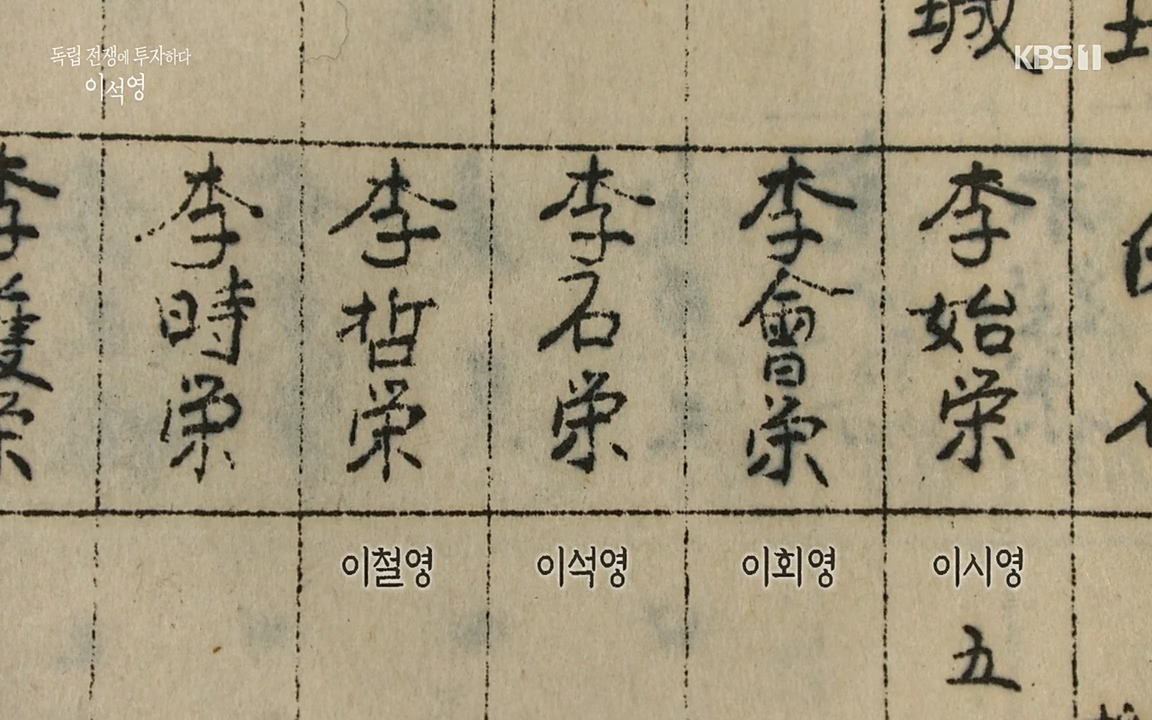 독립 전쟁에 투자하다
이석영
KBS 1
城
李始栄
李會栄
李石栄
李哲栄
李時栄
이철영
이석영
이회영
이시영
五